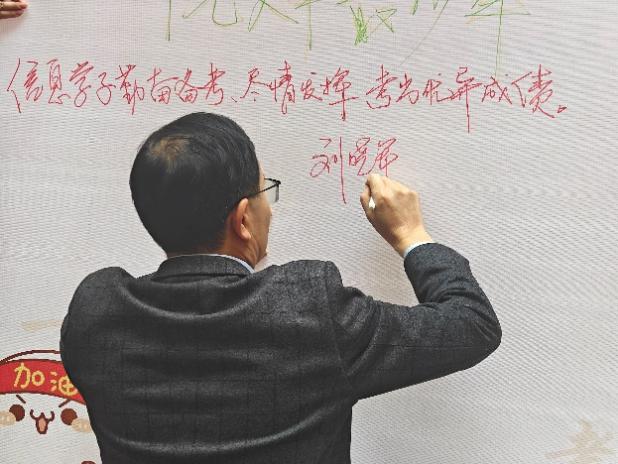 信息学子勤奋备考、尽情发挥,考出优异成绩。
刘晓军
加油